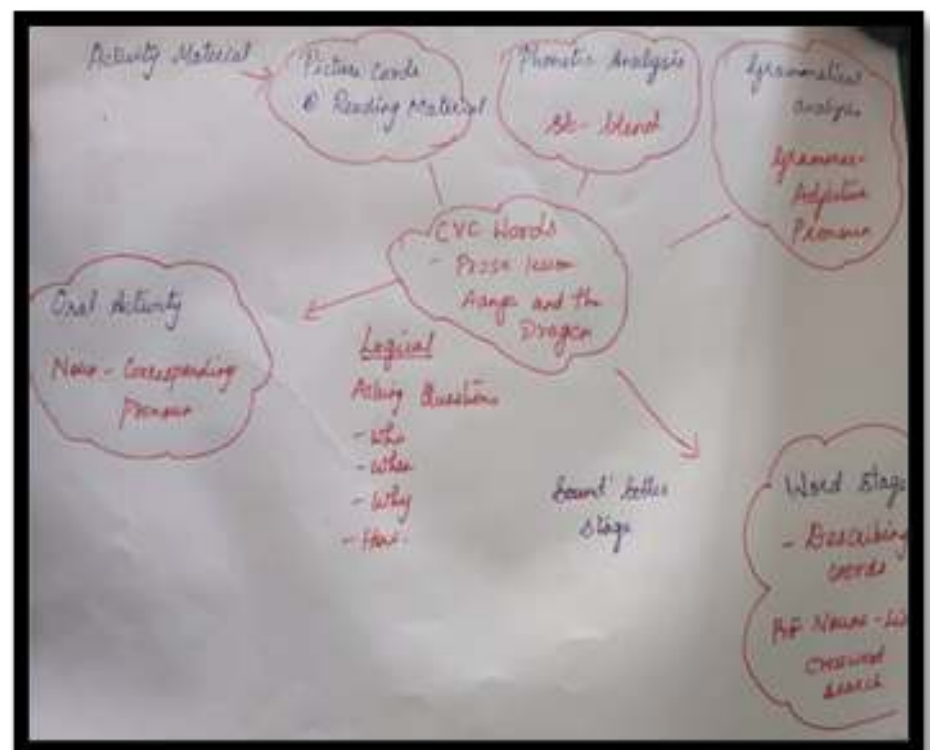 Activity Material
Picture Cards
Reading Material
Phonetic Analysis
blend
Grammatical
analysis
Grammar-
Adjective
Pronoun
CVC Words
- Prose lesson
and the
Dragon
Oral Activity
Noun - Corresponding
Pronoun
Logical
Asking Questions
- Who
- Why
- How
Sound letter
stage
Word Stage
- Describing
words
Nouns -
Crossword
search